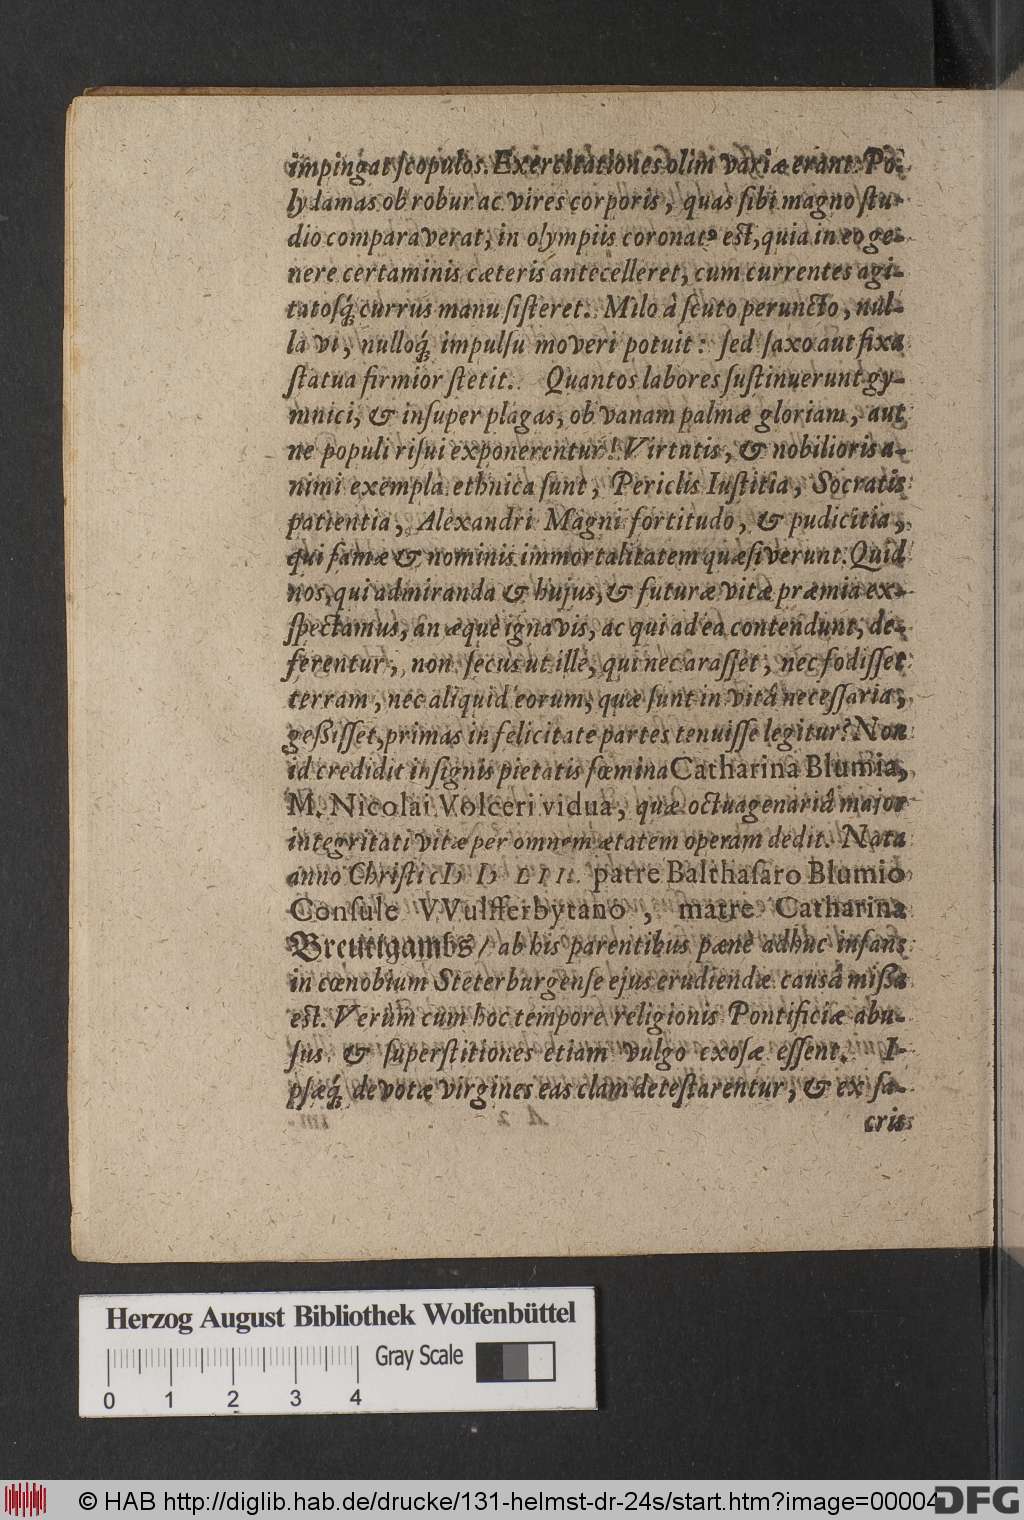 impingat ſcopulos. Exercitationes olim variæ erant. Po-
lydamas ob robur ac vires corporis, quas ſibi magno ſtu-
dio comparaverat, in olympiis coronatꝰ eſt, quia in eo ge-
nere certaminis cæteris antecelleret, cum currentes agi-
tatoſq́; currus manu ſiſteret. Milo â ſcuto peruncto, nul-
la vi, nulloq́; impulſu moveri potuit: ſed ſaxo aut fixa
ſtatua firmior ſtetit. Quantos labores ſuſtinuerunt gy-
mnici, & inſuper plagas, ob vanam palmæ gloriam, aut
ne populi riſui exponerentur! Virtutis, & nobilioris a-
nimi exempla ethnica ſunt, Periclis Iuſtitia, Socratis
patientia, Alexandri Magni fortitudo, & pudicitia,
qui famæ & nominis immortalitatem quæſiverunt. Quid
nos, qui admiranda & hujus, & futuræ vitæ præmia ex-
ſpectamus, an æquè ignavis, ac qui ad ea contendunt, de-
ferentur, non ſecus ut ille, qui nec araſſet, nec fodiſſet
terram, nec aliquid eorum, quæ ſunt in vitâ neceſſaria,
geßiſſet, primas in felicitate partes tenuiſſe legitur? Non
id credidit inſignis pietatis fœmina Catharina Blumia,
M. Nicolai Volceri vidua, quæ octuagenariâ major
integritati vitæ per omnem ætatem operam dedit. Nata
anno Chriſti cIↃ IↃ LIII. patre Balthaſaro Blumio
Conſule VVulfferbytano, matre Catharina
Breutigambs/ ab his parentibus pænè adhuc infans
in cœnobium Steterburgenſe ejus erudiendæ causâ mißa
est. Verùm cum hoc tempore religionis Pontificiæ abu-
ſus & ſuperſtitiones etiam vulgo exoſæ eſſent. I-
pſæq́; devotæ virgines eas clam deteſtarentur, & ex ſa-
cris
Herzog August Bibliothek Wolfenbüttel
Gray Scale
0 1 2 3 4
© HAB http://diglib.hab.de/drucke/131-helmst-dr-24s/start.htm?image=00004
DFG